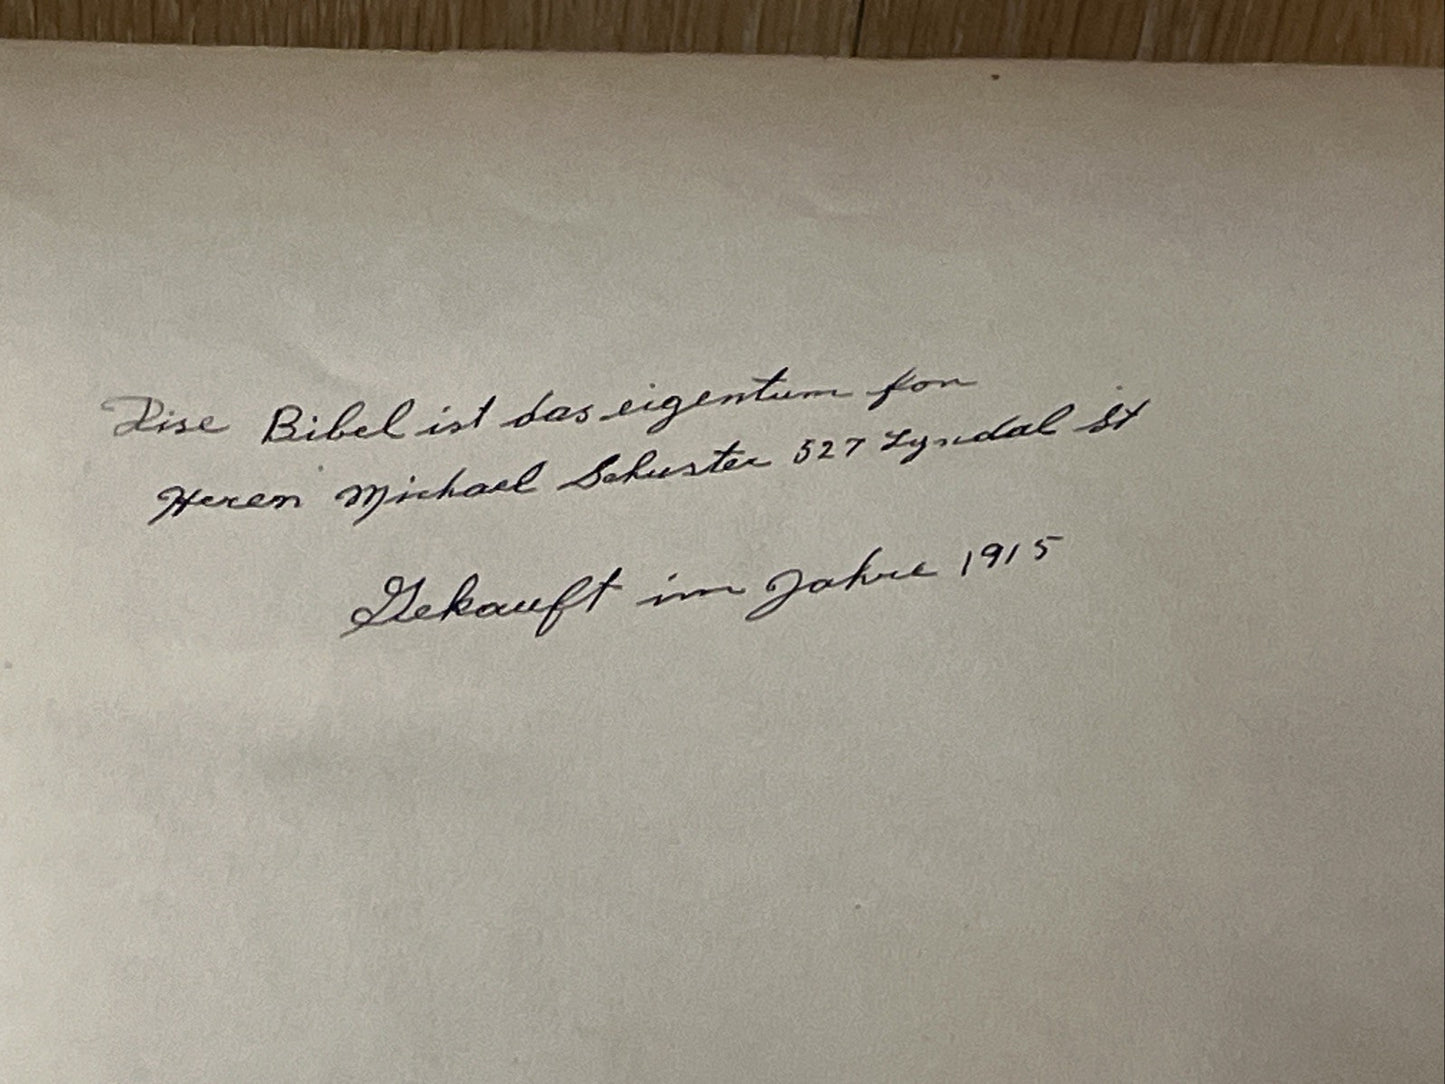 Dise Bibel ist das eigentum fon
Heren Michael Schuster 527 Lyndal St
Gekauft im Jahre 1915